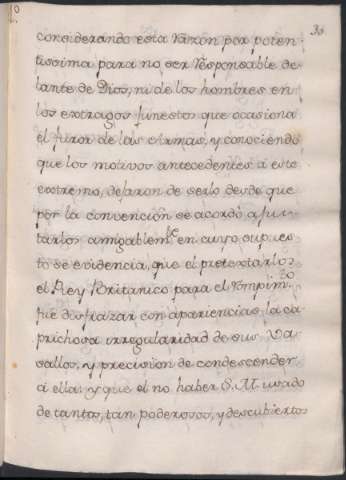 30
considerando esta razon por poten-
tissima para no ser responsable de-
lante de Dios, ni de los hombres en
los extragos funestos que ocasiona
el furor de las Armas, y conociendo
que los motivos antecedentes à este
extremo, dejaron de serlo desde que
por la convención se acordó ajus-
tarlos amigablemte en cuyo supues-
to se evidencia, que el pretextarlos
el Rey Britanico para el rompimto
fue disfrazar con apariencias la ca
prichosa irregularidad de sus Va-
sallos, y precision de condescender
à ella: y que el no haber S. M. usado
de tantos, tan poderosos, y descubiertos